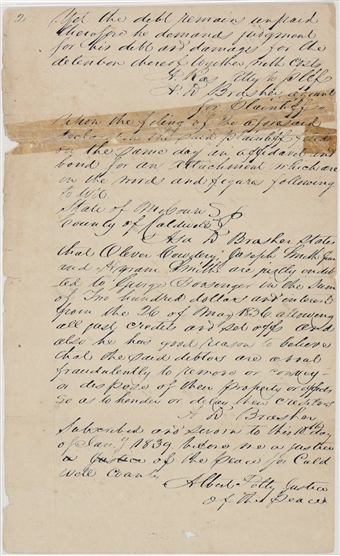 2
Yet the debt remain unpaid
therefore he demands judgment
for his debt and damages for the
detention thereof together with costs
Atty to pltff
A. D. Brasher agent
for Plaintiff
Upon the filing of the aforesaid
the said plaintiff filed
on the same day an affidavit and
bond for an attachment which are
in the word and figure following
to Wit
State of Missouri
County of Caldwell
Asa D Brasher States
that Oliver Cowdery Joseph Smith Jun
and Hyram Smith are justly indebt
ted to George Soronger in the Sum
of Two hundred dollars and interest
from the 26 of May 1836 allowing
all just credits and set offs and
also he has good reason to believe
that the said debtors are about
fraudulently to remove or convey
or dispose of their property or effects
so as to hinder or delay their creditors
A. D. Brasher
Subscribed and sworn to this 10th day
of Jany 1839 before me a justice
a Justice of the Peace for Cald
well county
Albert Petty Justice
of the Peace